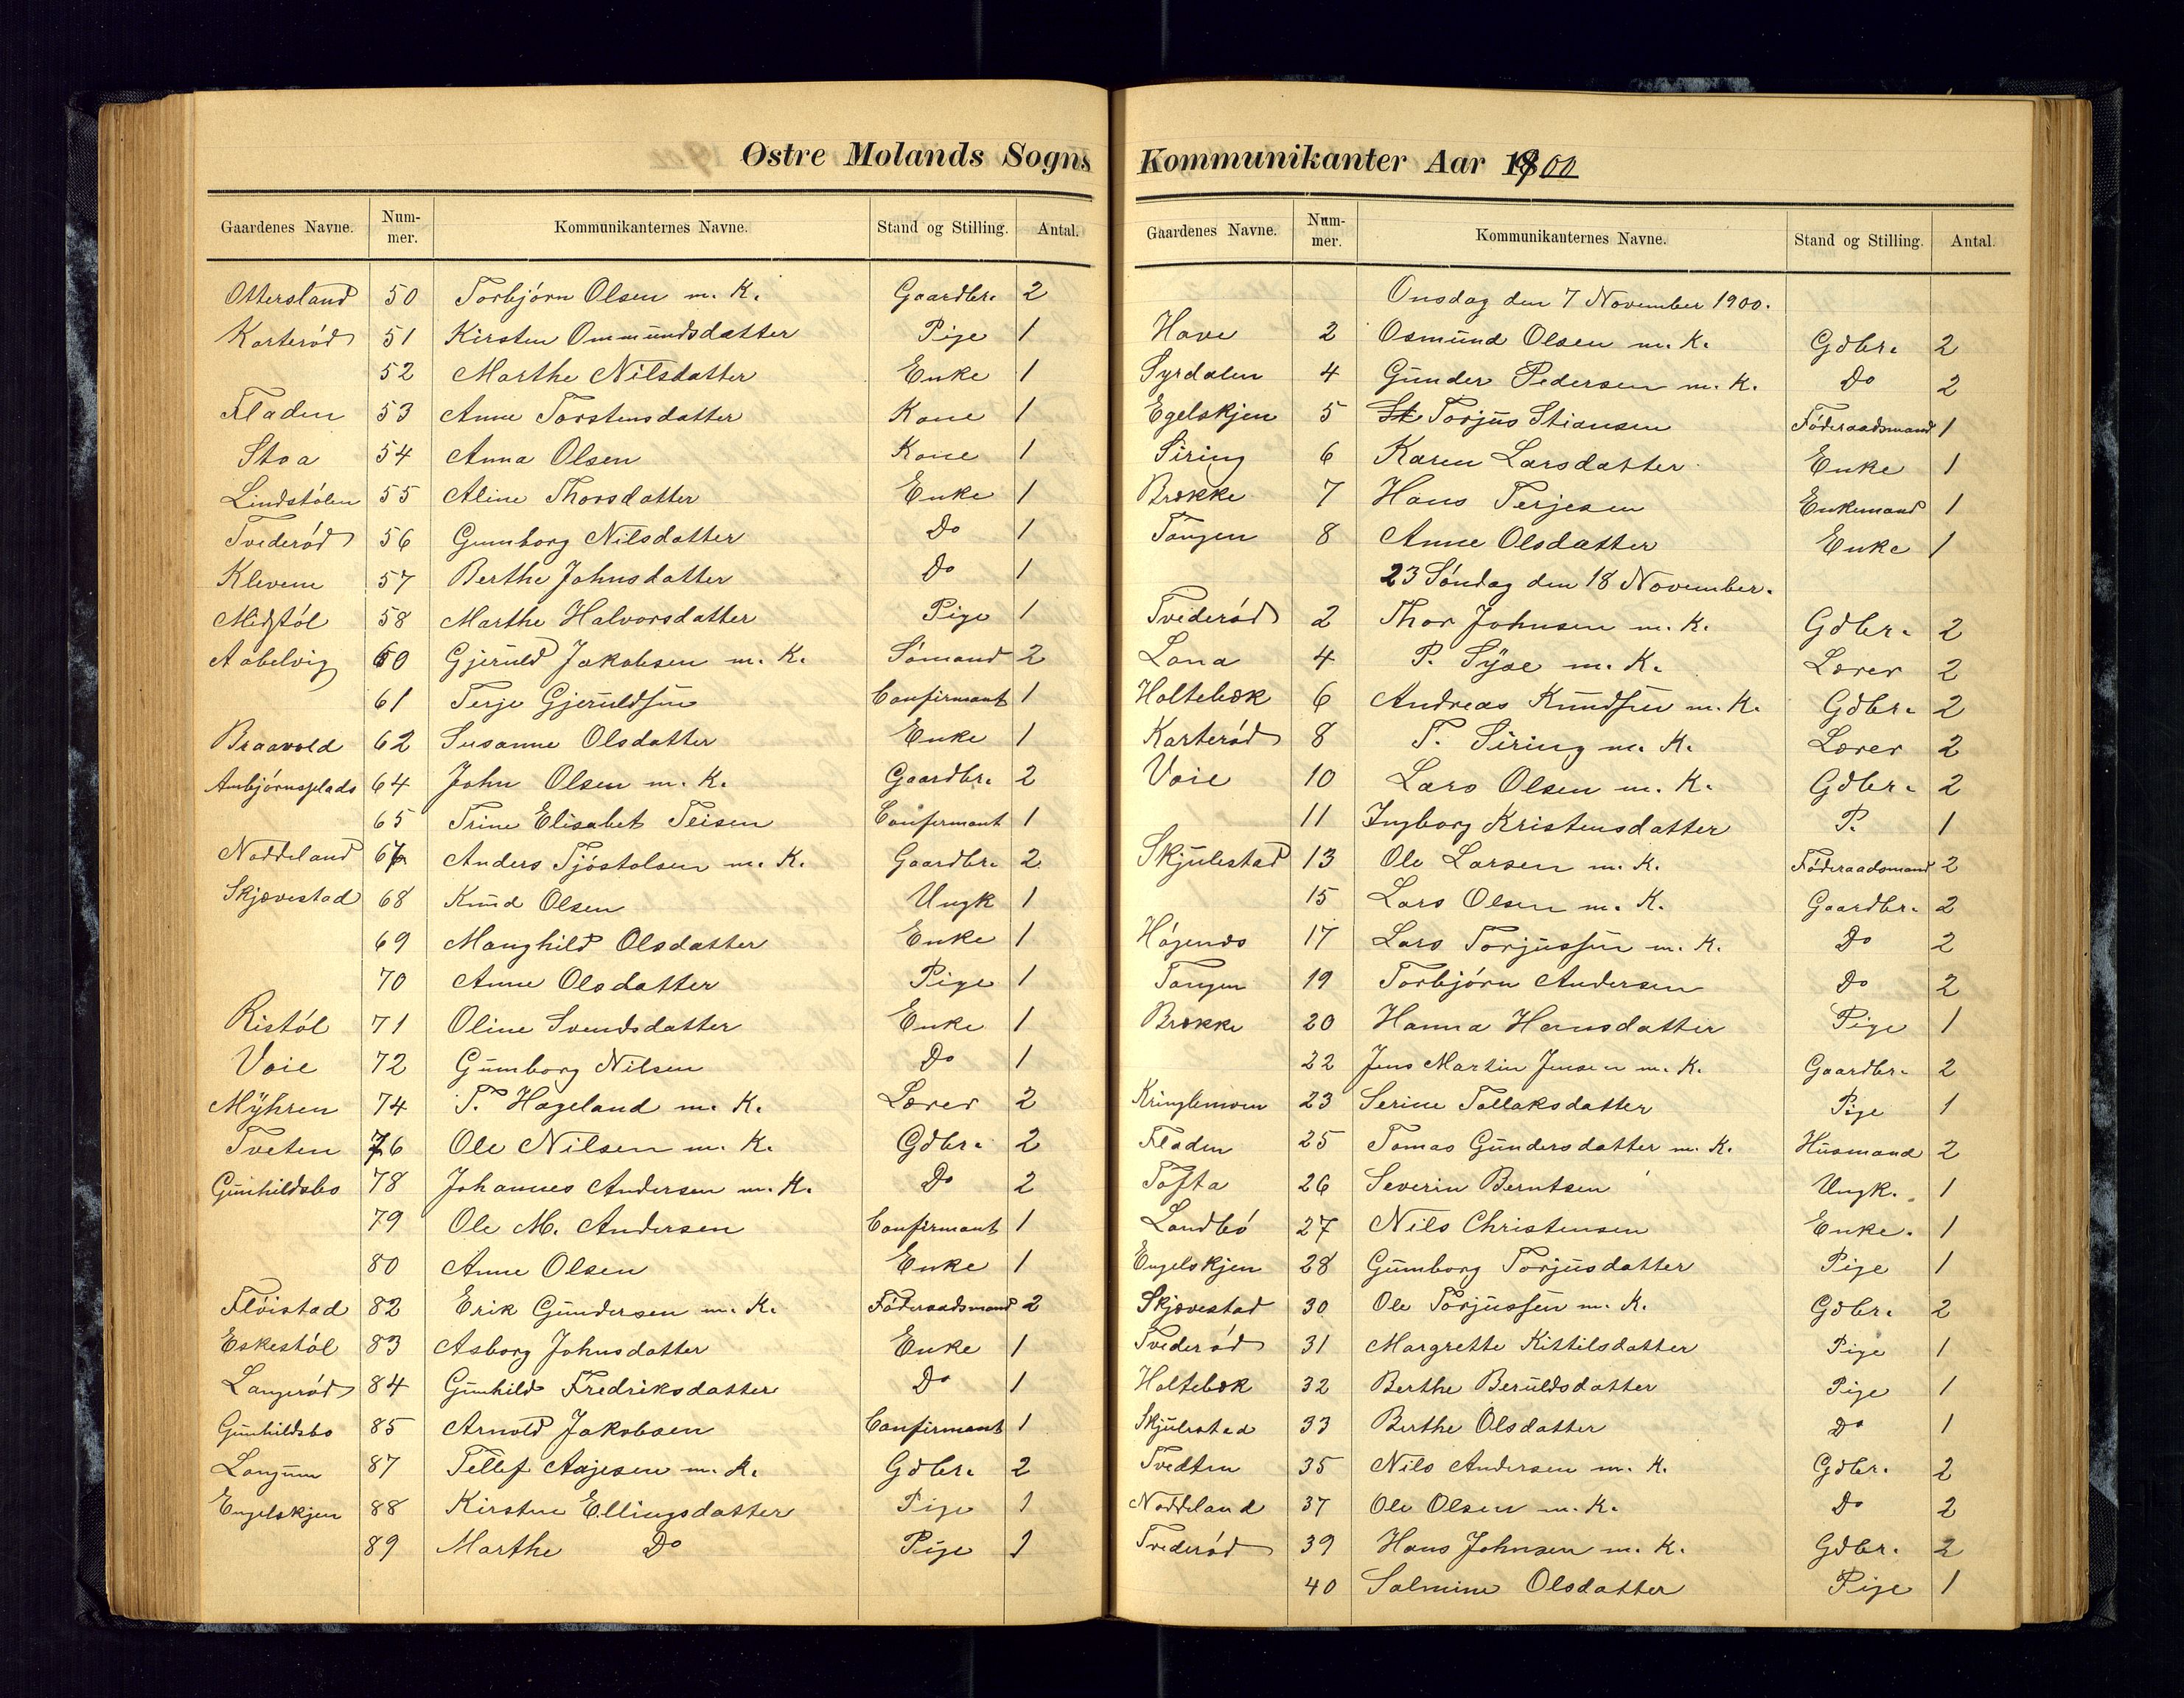 Østre Molands Sogns
Gaardenes Navne. Nummer. Kommunikanternes Navne. Stand og Stilling. Antal.
Ottersland 50 Torbjörn Olsen m. K. Gaardbr. 2
Karteröd 51 Kirsten Ommundsdatter Pige 1
52 Marthe Nilsdatter Enke 1
Fladen 53 Anne Torstensdatter Kone 1
Stoa 54 Anna Olsen Kone 1
Lindstölen 55 Aline Thorsdatter Enke 1
Tvederöd 56 Gumborg Nilsdatter Do 1
Klevene 57 Berthe Johnsdatter Do 1
Midstöl 58 Marthe Halvorsdatter Pige 1
Aabelvig 60 Gjeruld Jakobsen m. K. Sömand 2
61 Terje Gjeruldsen Confirmant 1
Braavold 62 Susanne Olsdatter Enke 1
Ambjörnsplads 64 John Olsen m. K. Gaardbr. 2
65 Trine Elisabet Teisen Confirmant 1
Noddeland 67 Anders Tjöstolsen m. K. Gaardbr. 2
Skjævestad 68 Knud Olsen Ungk 1
69 Manghild Olsdatter Enke 1
70 Anne Olsdatter Pige 1
Ristöl 71 Oline Svendsdatter Enke 1
Voie 72 Gumborg Nilsen Do 1
Myhren 74 T. Hageland m. K. Lærer 2
Tveten 76 Ole Nilsen m. K. Gdbr. 2
Gunhildsbo 78 Johannes Andersen m. K. Do 2
79 Ole M. Andersen Confirmant 1
80 Anne Olsen Enke 1
Flöistad 82 Erik Gundersen m. K. Föderaadsmand 2
Eskestöl 83 Asborg Johnsdatter Enke 1
Langeröd 84 Gunhild Fredriksdatter Do 1
Gunhildsbo 85 Arnold Jakobsen Confirmant 1
Langum 87 Tellef Aajesen m. K. Gdbr. 2
Engelskjen 88 Kirstine Ellingsdatter Pige 1
89 Marthe Do Pige 1
Kommunikanter Aar 1900
Gaardenes Navne. Nummer. Kommunikanternes Navne. Stand og Stilling. Antal.
Onsdag den 7 November 1900.
Have 2 Osmund Olsen m. K. Gdbr. 2
Syrdalen 4 Gunder Pedersen m. K. Do 2
Egelskjen 5 St Torjus Stiansen Föderaadsmand 1
Siring 6 Karen Larsdatter Enke 1
Brække 7 Hans Terjesen Enkemand 1
Tangen 8 Anne Olsdatter Enke 1
23 Söndag den 18 November.
Tvederöd 2 Thor Johnsen m. K. Gdbr. 2
Lona 4 P. Syse m. K. Lærer 2
Holtebæk 6 Andreas Knudsen m. K. Gdbr. 2
Karteröd 8 T. Siring m. K. Lærer 2
Voie 10 Lars Olsen m. K. Gdbr. 2
11 Ingborg Kristensdatter P. 1
Skjulestad 13 Ole Larsen m. K. Föderaadsmand 2
15 Lars Olsen m. K. Gaardbr. 2
Högenes 17 Lars Torjussen m. K. Do 2
Tangen 19 Torbjörn Andersen Do 2
Brække 20 Hanna Hansdatter Pige 1
22 Jens Martin Jensen m. K. Gaardbr. 2
Kringlemoen 23 Serine Tollaksdatter Pige 1
Fladen 25 Tomas Gundersdatter m. K. Husmand 2
Tofta 26 Severin Berntsen Ungk. 1
Landbö 27 Nils Christensen Enke. 1
Engelskjen 28 Gumborg Torjusdatter Pige 1
Skjævestad 30 Ole Torjussen m. K. Gdbr. 2
Tvederöd 31 Margrette Kittilsdatter Pige 1
Holtebæk 32 Berthe Beruldsdatter Pige 1
Skjulestad 33 Berthe Olsdatter Do 1
Tvedten 35 Nils Andersen m. K. Gdbr. 2
Noddeland 37 Ole Olsen m. K. Do 2
Tvederöd 39 Hans Johnsen m. K. Gdbr. 2
40 Salmine Olsdatter Pige 1